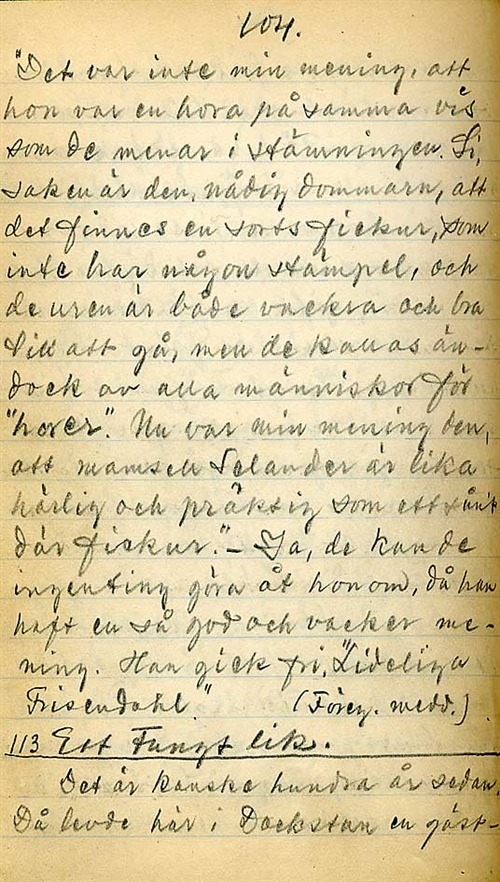 104.
"Det var inte min mening, att
hon var en hora på samma vis
som de menar i stämningen. Si,
saken är den, nådig dommarn, att
det finnes en sorts fickur, som
inte har någon stämpel, och
de uren är både vackra och bra
till att gå, men de kallas än-
dock av alla människor för
"horer". Nu var min mening den,
att mamsell Selander är lika
härlig och präktig som ett sånt
där fickur." - Ja, de kunde
ingenting göra åt honom, då han
haft en så god och vacker me-
ning. Han gick fri, "Lideliga
Frisendahl" (Föreg. medd.)
113 Ett Tungt lik.
Det är kanske hundra år sedan.
Då levde här i Dockstan en gäst-